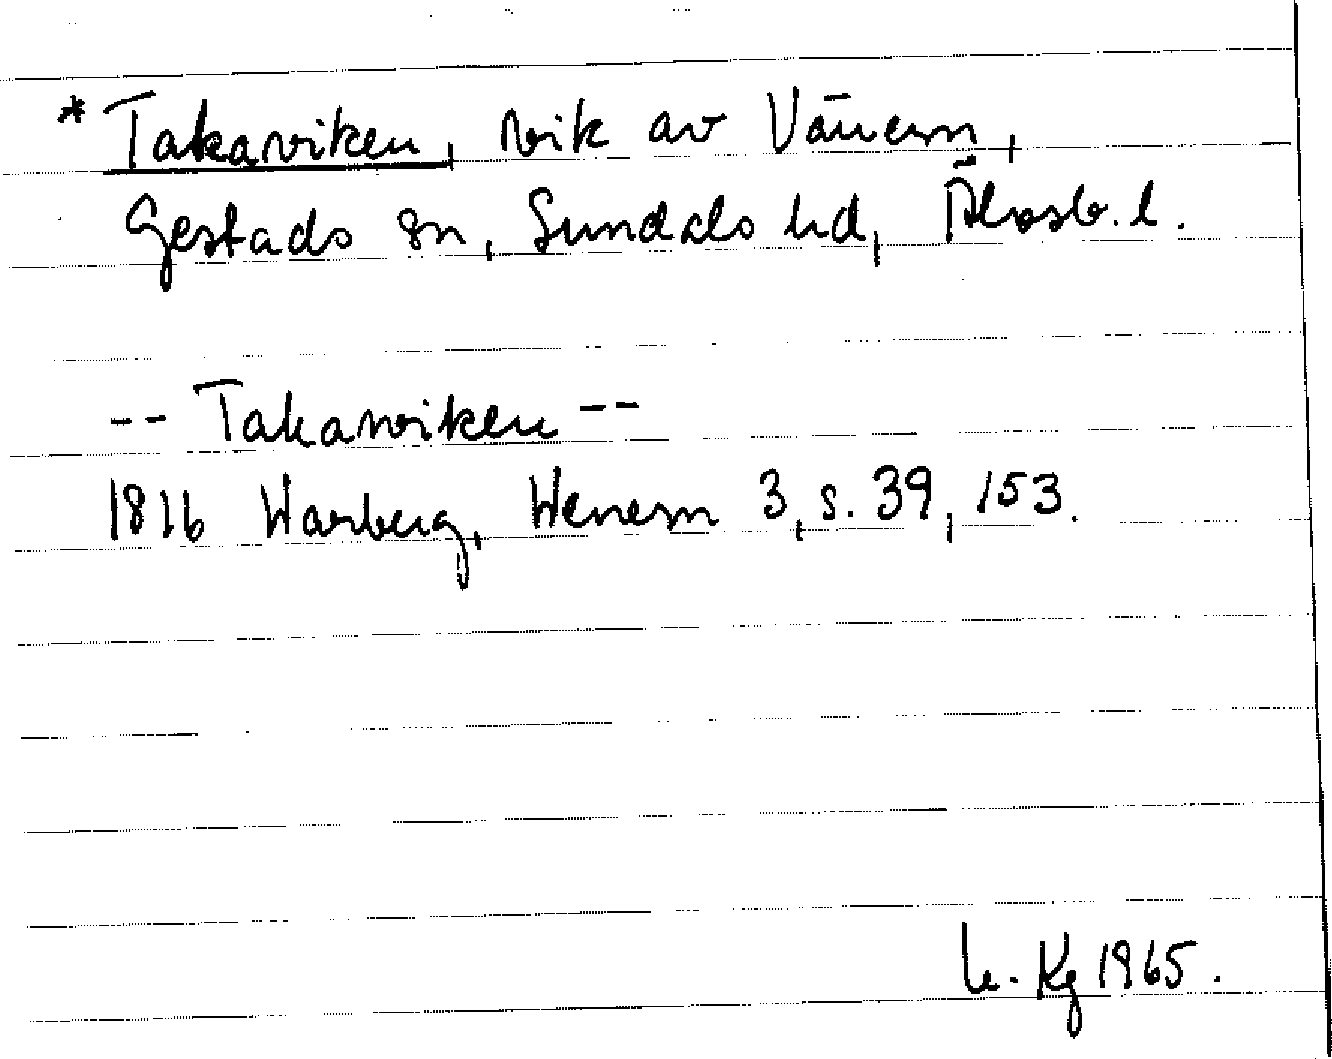 * Takaviken, vik av Vänern,
Gestads sn, Sundals hd, Älvsb. l.
-- Takawiken --
1816 Warberg, Wenern 3, s. 39, 153.
Kg 1965.